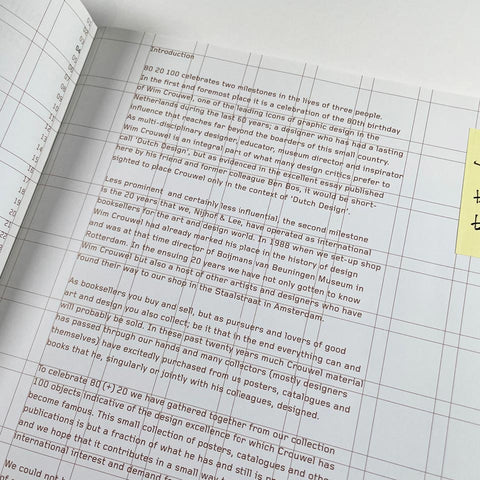 Introduction
80 20 100 celebrates two milestones in the lives of three people.
In the first and foremost place it is a celebration of the 80th birthday
of Wim Crouwel, one of the leading icons of graphic design in the
Netherlands during the last 60 years; a designer who has had a lasting
influence that reaches far beyond the boarders of this small country.
As multi-disciplinary designer, educator, museum director and inspirator
Wim Crouwel is an integral part of what many design critics prefer to
call 'Dutch Design', but as evidenced in the excellent essay published
here by his friend and former colleague Ben Bos, it would be short-
sighted to place Crouwel only in the context of 'Dutch Design'.
Less prominent and certainly less influential, the second milestone
is the 20 years that we, Nijhof & Lee, have operated as international
booksellers for the art and design world. In 1988 when we set-up shop
Wim Crouwel had already marked his place in the history of design
and was at that time director of Boijmans van Beuningen Museum in
Rotterdam. In the ensuing 20 years we have not only gotten to know
Wim Crouwel but also a host of other artists and designers who have
found their way to our shop in the Staalstraat in Amsterdam.
As booksellers you buy and sell, but as pursuers and lovers of good
art and design you also collect; be it that in the end everything can and
will probably be sold. In these past twenty years much Crouwel material
has passed through our hands and many collectors (mostly designers
themselves) have excitedly purchased from us posters, catalogues and
books that he, singularly or jointly with his colleagues, designed.
To celebrate 80 (+) 20 we have gathered together from our collection
100 objects indicative of the design excellence for which Crouwel has
become famous. This small collection of posters, catalogues and other
publications is but a fraction of what he has and still is
and we hope that it contributes in a small way
international interest and demand
We could not